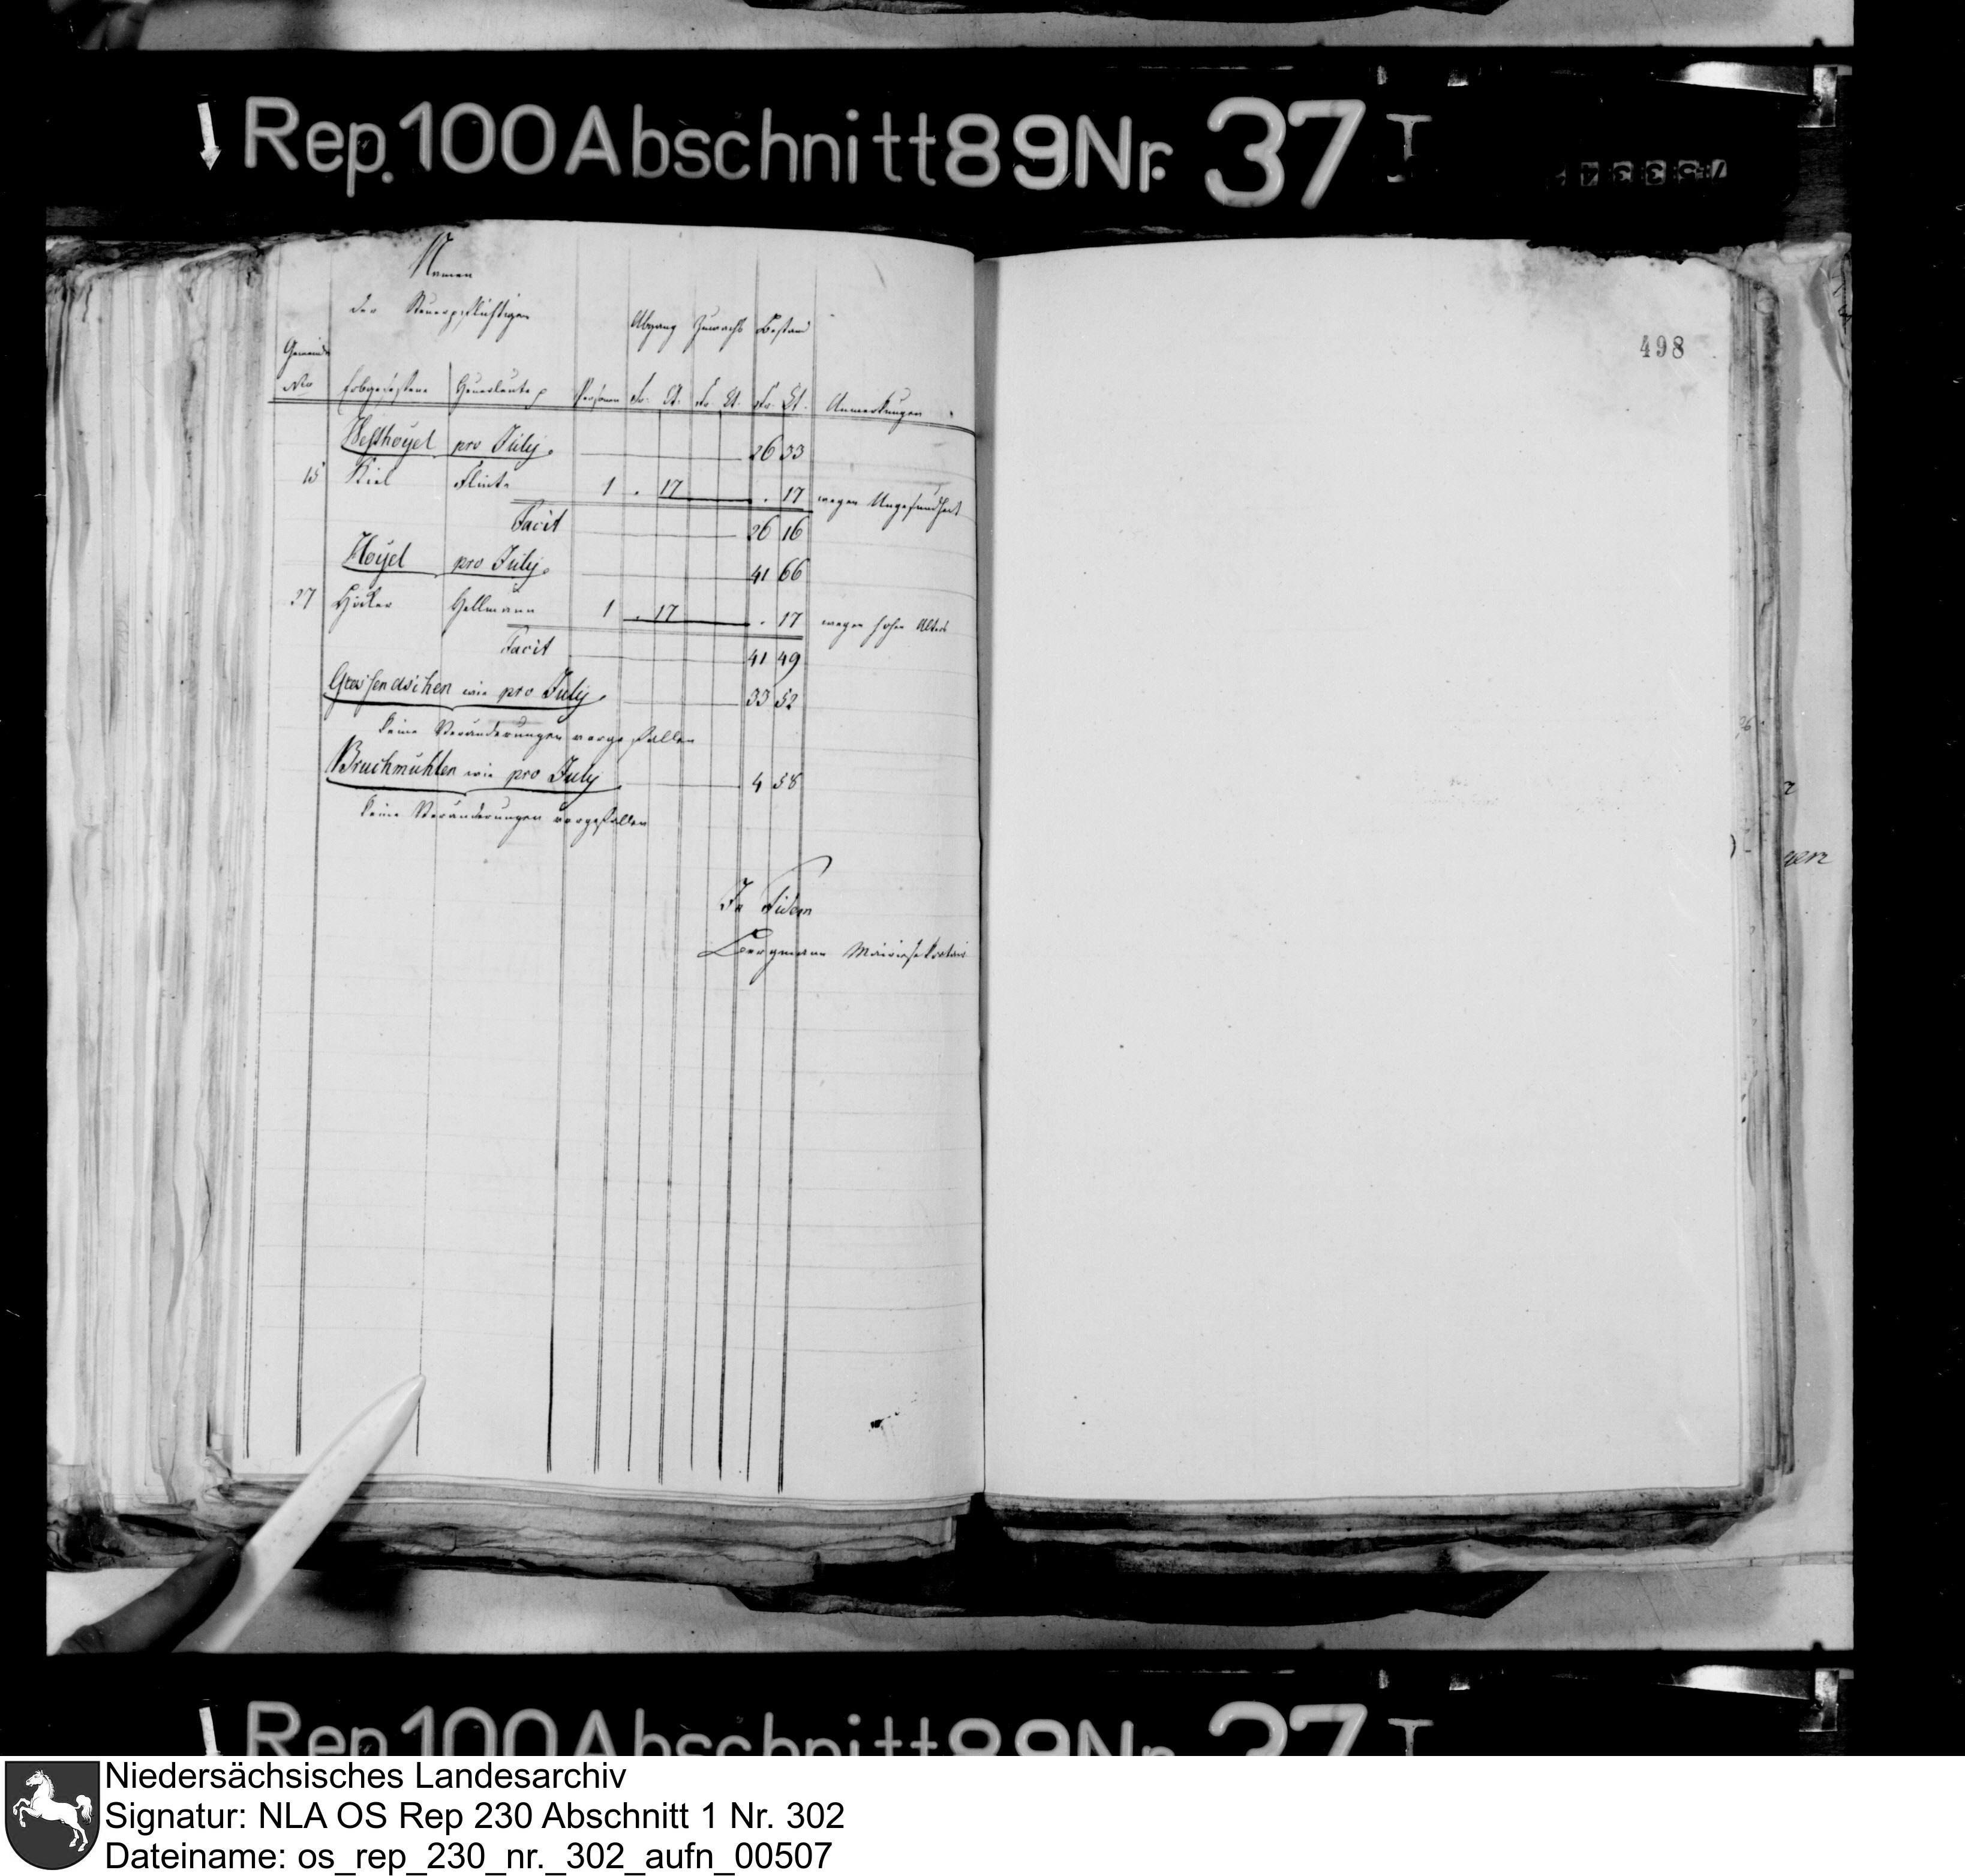 Rep. 100 Abschnitt 89 Nr. 37 I
Namen
der Steuerpflichtigen
Abgang Zuwachs Bestand
Gemeinde
Nro Erbgesessene Heuerleute Personen Fr. Ct. Fr Ct. Fr. Ct. Anmerkungen
498
Westhoyel pro July. 26 33
15 Kiel Flinte 1 . 17 . 17 wegen Ungesundheit
Facit 26 16
Hoyel pro July. 41 66
27 Höcker Hellmann 1 . 17 . 17 wegen hohen Alters
Facit 41 49
wie pro July. 33 52
keine Veränderungen vorgefallen
Bruchmühlen wie pro July 4 58
keine Veränderungen vorgefallen
In Fidem
Bergmann Mairiesekretair
Rep. 100 Abschnitt 89 Nr. 37 I
Niedersächsisches Landesarchiv
Signatur: NLA OS Rep 230 Abschnitt 1 Nr. 302
Dateiname: os_rep_230_nr._302_aufn_00507